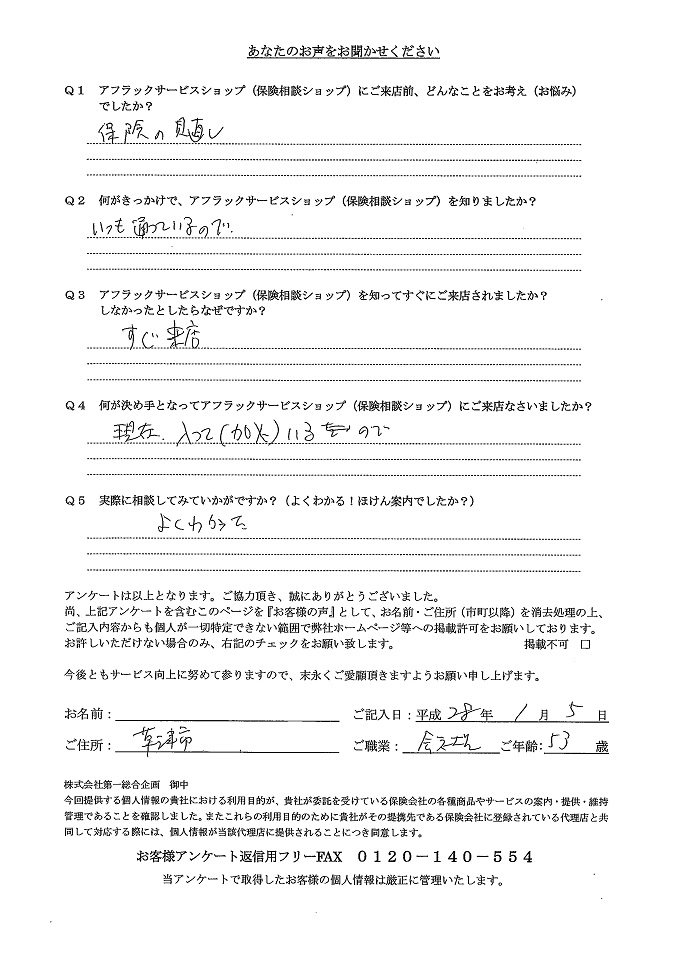 あなたのお声をお聞かせください
Q1 アフラックサービスショップ（保険相談ショップ）にご来店前、どんなことをお考え（お悩み）
でしたか？
保険の見直し
Q2 何がきっかけで、アフラックサービスショップ（保険相談ショップ）を知りましたか？
いつも通っているので
Q3 アフラックサービスショップ（保険相談ショップ）を知ってすぐにご来店されましたか？
しなかったとしたらなぜですか？
すぐ来店
Q4 何が決め手となってアフラックサービスショップ（保険相談ショップ）にご来店なさいましたか？
現在、入って(加入)いる ので
Q5 実際に相談してみていかがですか？（よくわかる！ほけん案内でしたか？）
よくわかった
アンケートは以上となります。ご協力頂き、誠にありがとうございました。
尚、上記アンケートを含むこのページを『お客様の声』として、お名前・ご住所（市町以降）を消去処理の上、
ご記入内容からも個人が一切特定できない範囲で弊社ホームページ等への掲載許可をお願いしております。
お許しいただけない場合のみ、右記のチェックをお願い致します。 掲載不可 □
今後ともサービス向上に努めて参りますので、末永くご愛顧頂きますようお願い申し上げます。
お名前： ご記入日：平成 28 年 1 月 5 日
ご住所： 草津市 ご職業： 会社員 ご年齢：53 歳
株式会社第一総合企画 御中
今回提供する個人情報の貴社における利用目的が、貴社が委託を受けている保険会社の各種商品やサービスの案内・提供・維持
管理であることを確認しました。またこれらの利用目的のために貴社がその提携先である保険会社に登録されている代理店と共
同して対応する際には、個人情報が当該代理店に提供されることにつき同意します。
お客様アンケート返信用フリーFAX 0120－140－554
当アンケートで取得したお客様の個人情報は厳正に管理いたします。